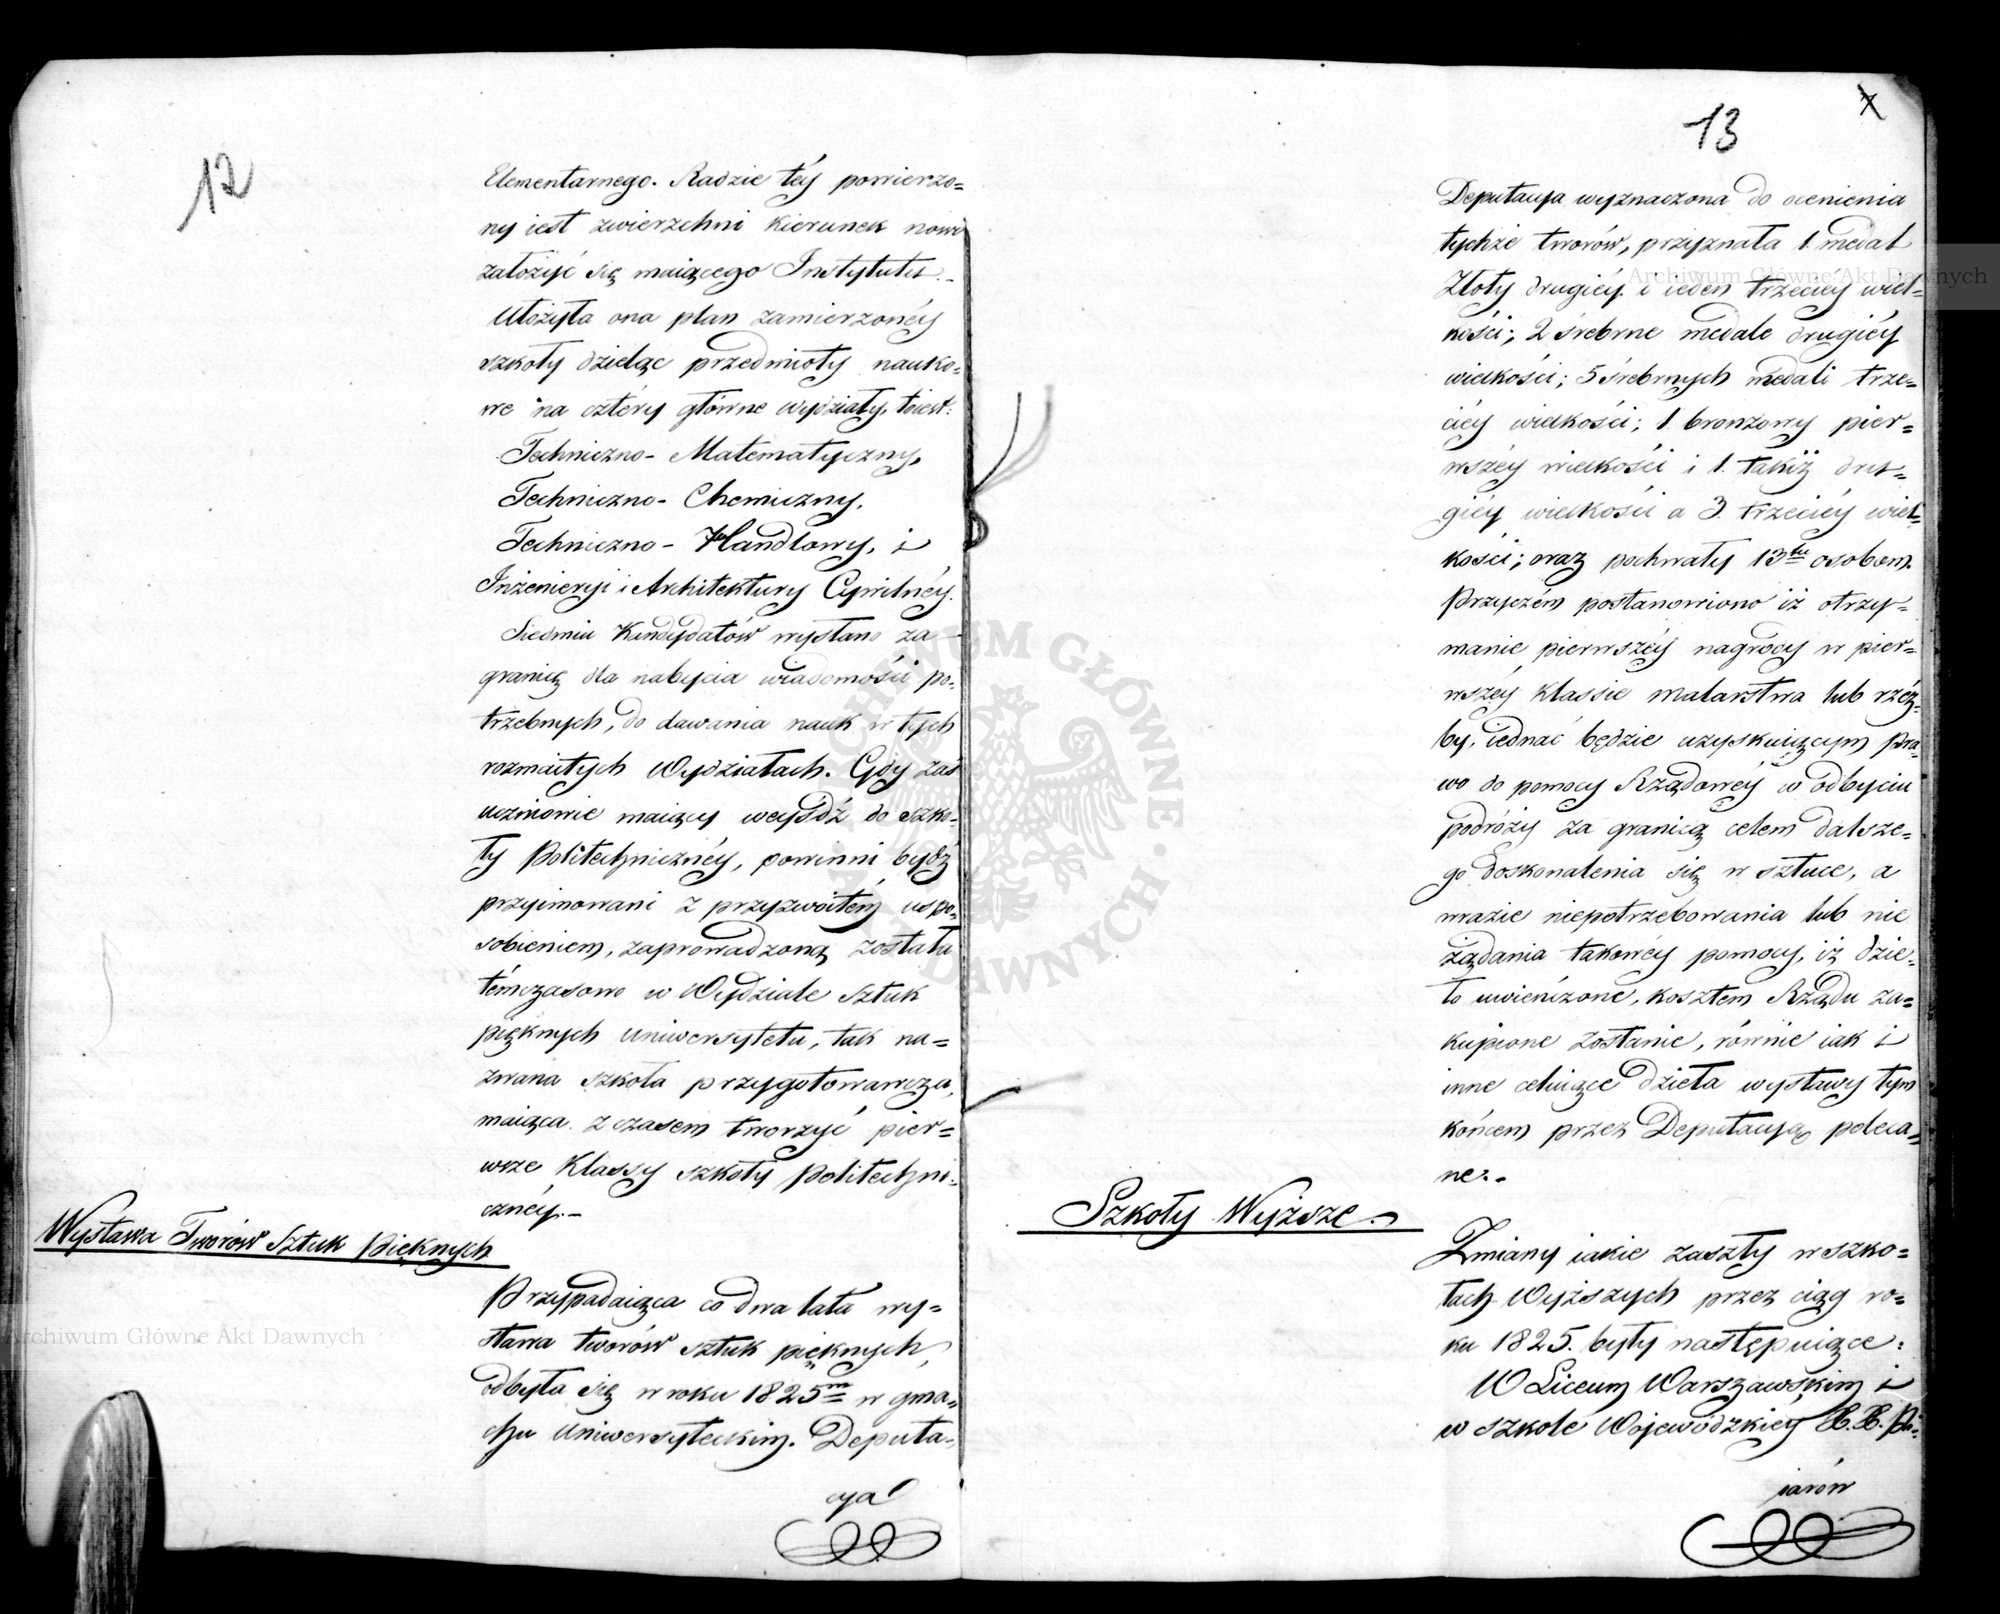 12
Elementarnego. Radzie téy powierzo=
ny iest zwierzchni kierunek nowo
założyć się maiącego Instytutu.
Ułożyła ona plan zamierzonéy
szkoły dzieląc przedmioty nauko=
we na cztéry główne wydziały, toiest:
Techniczno-Matematyczny,
Techniczno-Chemiczny,
Techniczno-Handlowy, i
Inżenieryi i Architektury Cywilnéy.
Siedmiu Kandydatów wysłano za
granicę dla nabycia wiadomości po=
trzebnych, do dawania nauk w tych
rozmaitych Wydziałach. Gdy zaś
uczniowie maiący weyśdź do szko=
ły Politechnicznéy, powinni bydź
przyimowani z przyzwoitém uspo=
sobieniem, zaprowadzoną została
témczasowo w Wydziale Sztuk
pięknych Uniwersytetu, tak na=
zwana szkoła przygotowawcza,
maiąca z czasem tworzyć pier=
wsze Klassy szkoły Politechni=
cznéy.-
Wystawa Tworów Sztuk Pięknych
Przypadaiąca co dwa lata wy=
stawa tworów sztuk pięknych,
odbyła się w roku 1825m w gma=
chu Uniwersyteckim. Deputa=
cya
13
7
Deputacya wyznaczona do ocenienia
tychże tworów, przyznała 1. medal
Złoty drugiéy i ieden trzeciéy wiel=
kości; 2 śrebrne medale drugiéy
wielkości; 5 śrebrnych medali trze=
ciéy wielkości; 1. bronzowy pier=
wszéy wielkości i 1. takiż dru=
giéy wielkości a 3. trzeciéy wiel=
kości; oraz pochwały 13tu osobom.
Przyczém postanowiono iż otrzy=
manie pierwszéy nagrody w pier=
wszéy Klassie malarstwa lub rzéź=
by, iednać będzie uzyskuiącym pra=
wo do pomocy Rządowéy w odbyciu
podróży za granicą celem dalsze=
go doskonalenia się w sztuce, a
wrazie niepotrzebowania lub nie
żądania takowéy pomocy, iż dzie=
ło uwieńczone, kosztem Rządu za=
kupione zostanie, równie iak i
inne celuiące dzieła wystawy tym
końcem przez Deputacyą poleca=
ne.-
Szkoły Wyższe.
Zmiany iakie zaszły w szko=
łach Wyższych przez ciąg ro=
ku 1825. były następuiące:
W Liceum Warszawskim i
w szkole Wojewódzkiéy X.X. Pi=
iarów
Archiwum Główne Akt Dawnych
Archiwum Główne Akt Dawnych
ARCHIWUM GŁÓWNE AKT DAWNYCH